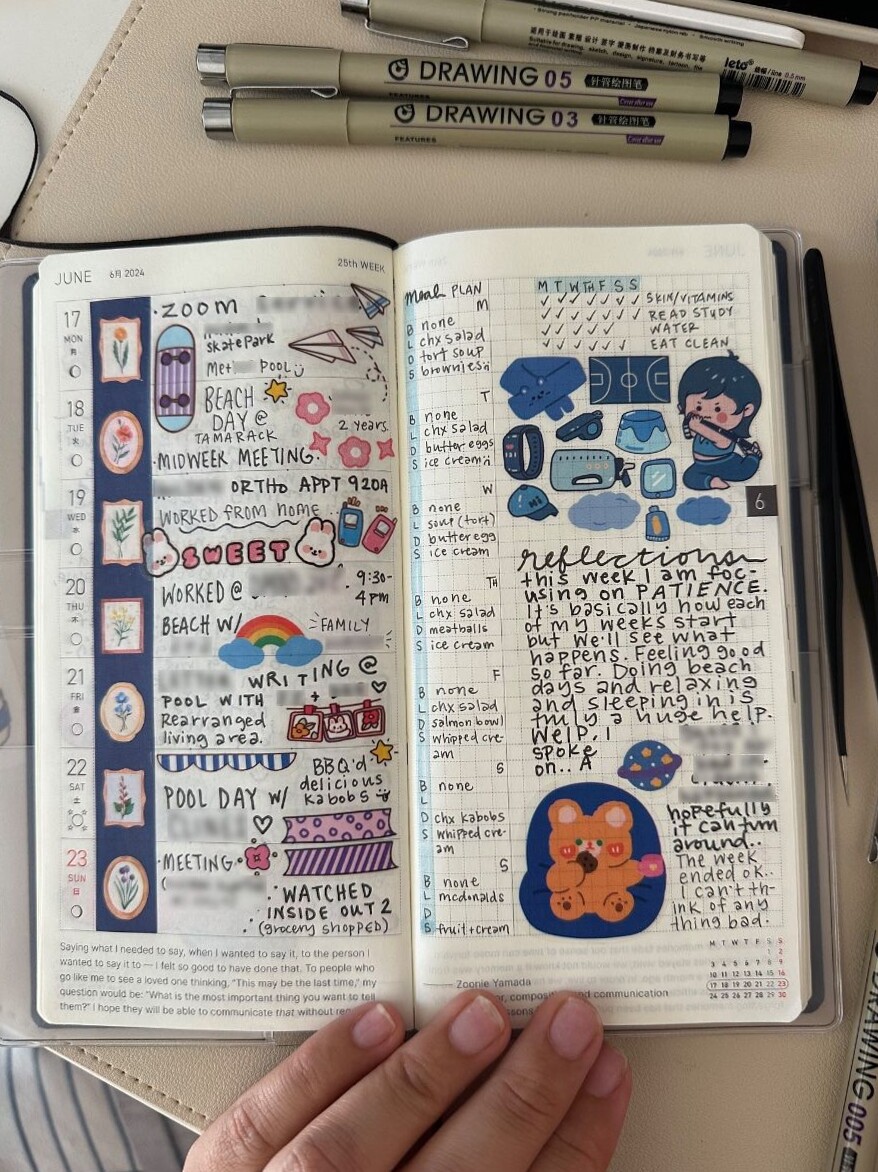 DRAWING 05 针管绘图笔
FEATURES
DRAWING 03 针管绘图笔
FEATURES
JUNE 6月 2024 25th WEEK
17
MON
月
ZOOM
skatepark
Met POOL
18
TUE
火
BEACH
DAY @
TAMARACK
2 years
MIDWEEK MEETING
19
WED
水
ORTHO APPT 920A
WORKED FROM HOME
SWEET
20
THU
木
WORKED @ 9:30-
4PM
BEACH W/ FAMILY
21
FRI
金
WRITING @
POOL WITH +
Rearranged
living area.
22
SAT
土
BBQ'd
delicious
kabobs
POOL DAY W/
23
SUN
日
MEETING
WATCHED
INSIDE OUT 2
(grocery shopped)
Saying what I needed to say, when I wanted to say it, to the person I
wanted to say it to — I felt so good to have done that. To people who
go like me to see a loved one thinking, "This may be the last time," my
question would be: "What is the most important thing you want to tell
them?" I hope they will be able to communicate that without
Meal PLAN
M
B none
L chx salad
D tort soup
S brownies
T
B none
L chx salad
D butter eggs
S ice cream
W
B none
L soup (tort)
D butter egg
S ice cream
TH
B none
L chx salad
D meatballs
S ice cream
F
B none
L chx salad
D salmon bowl
S whipped cre-
am
S
B none
L
D chx kabobs
S whipped cre-
am
S
B none
L mcdonalds
D
S fruit + cream
M T W TH F S S
SKIN/VITAMINS
READ STUDY
WATER
EAT CLEAN
6
reflections
this week I am foc-
using on PATIENCE.
It's basically how each
of my weeks start
but we'll see what
happens. Feeling good
so far. Doing beach
days and relaxing
and sleeping in is
truly a huge help.
Welp, I
spoke
on.. A
hopefully
it can turn
around..
The week
ended ok..
I can't th-
ink of any
thing bad.
M T W T F S S
1 2
3 4 5 6 7 8 9
10 11 12 13 14 15 16
17 18 19 20 21 22 23
24 25 26 27 28 29 30
Zoonie Yamada
and communication
DRAWING 005